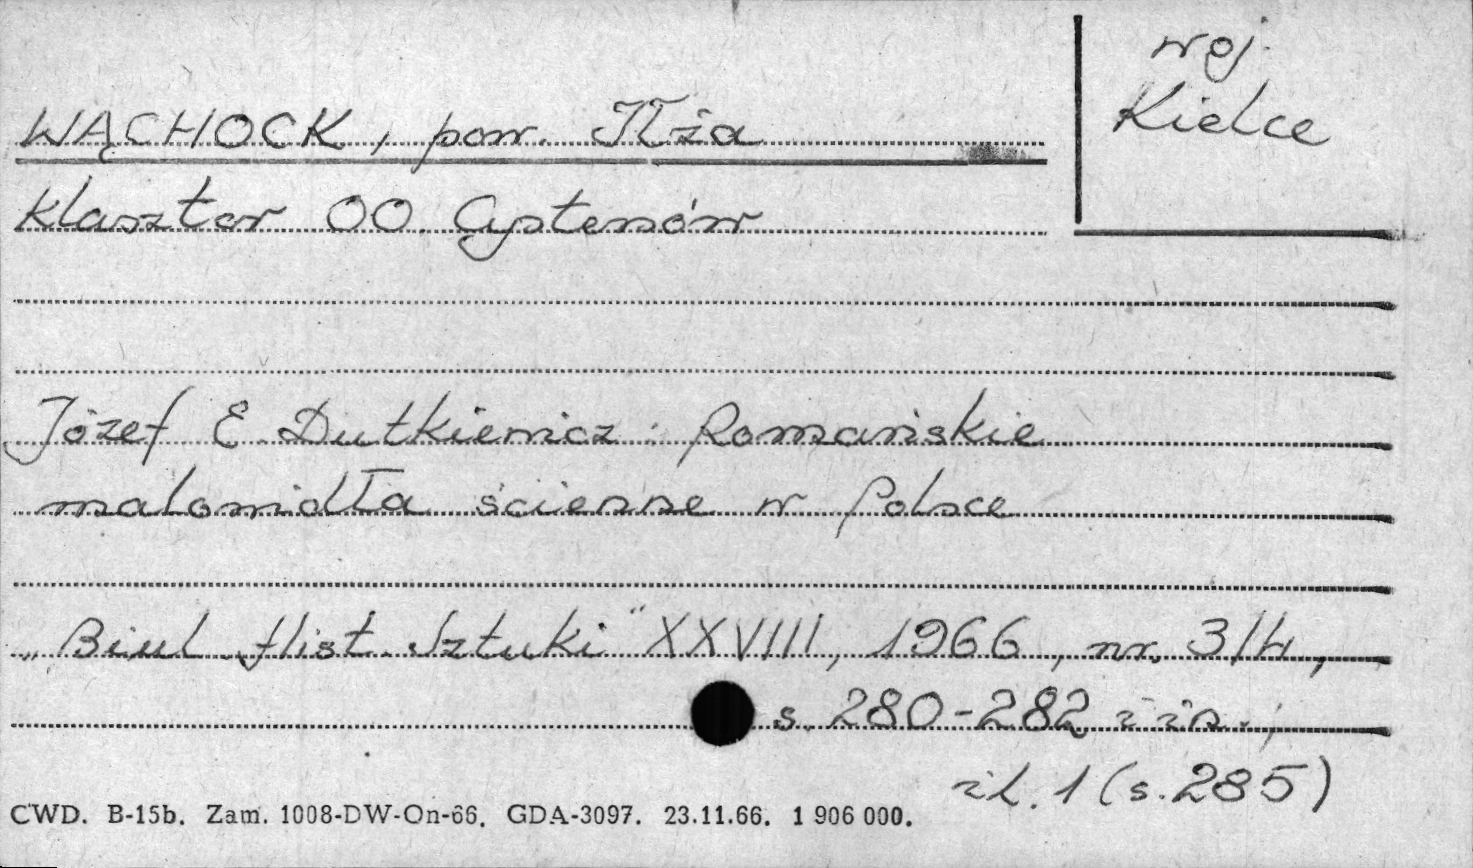 WĄCHOCK, pow. Iłża
woj. Kielce
klasztor OO. Cystersów
Józef E. Dutkiewicz: Romańskie
malowidła ścienne w Polsce
„Biul. Hist. Sztuki" XXVIII, 1966, nr. 3/4,
s. 280-282 i in.;
il. 1 (s. 285)
CWD. B-15b. Zam. 1008-DW-On-66. GDA-3097. 23.11.66. 1 906 000.